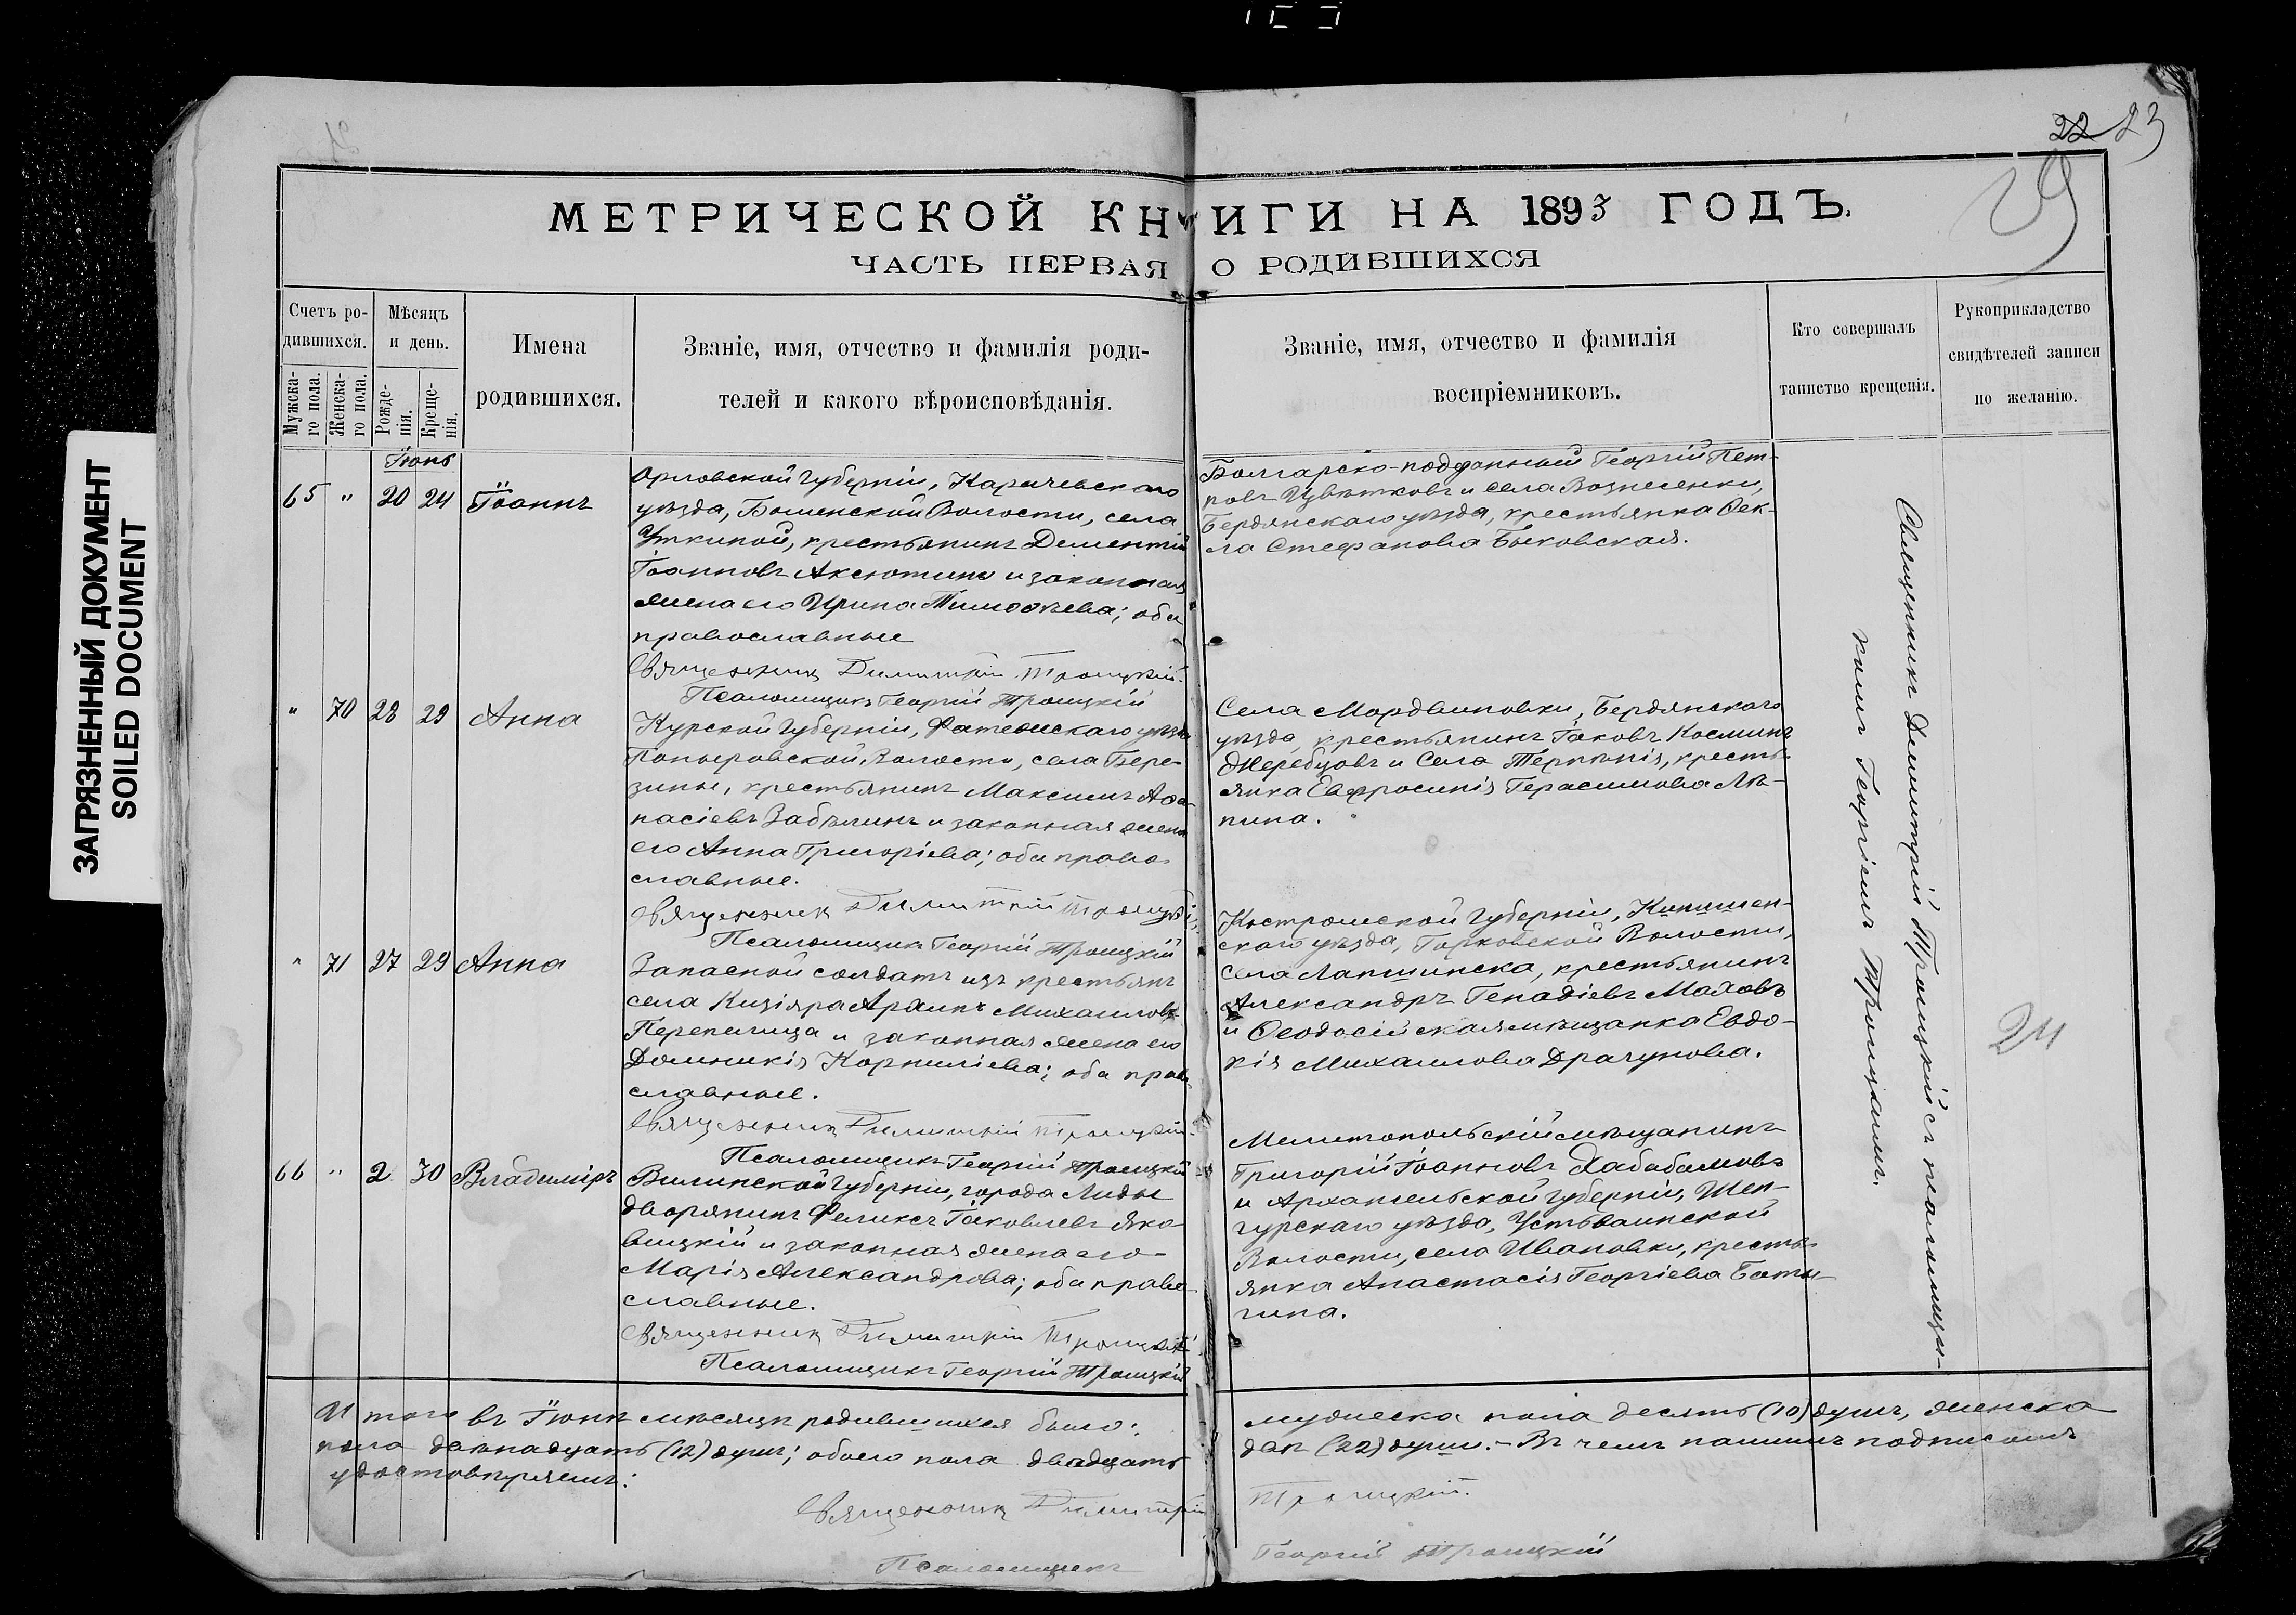 22 23
29
МЕТРИЧЕСКОЙ КНИГИ НА 1893 ГОДЪ.
ЧАСТЬ ПЕРВАЯ О РОДИВШИХСЯ
Счетъ ро-
дившихся.
Мужска-
го пола.
Женска-
го пола.
Мѣсяцъ
и день.
Рожде-
нія.
Креще-
нія.
Имена
родившихся.
Званіе, имя, отчество и фамилія роди-
телей и какого вѣроисповѣданія.
Званіе, имя, отчество и фамилія
воспріемниковъ.
Кто совершалъ
таинство крещенія.
Рукоприкладство
свидѣтелей записи
по желанію.
Іюнь
65 " 20 24 Іоаннъ
Орловской Губерніи, Карачевскаго
уѣзда, Бошенской Волости, села
Уткиной, крестьянинъ Дементій
Іоанновъ Аксютинъ и законная
жена его Ирина Тимоѳѣева; оба
православные
Священникъ Димитрій Троицкій.
Псаломщикъ Георгій Троицкій
Болгарско-подданный Георгій Пет-
ровъ Цвѣтковъ и села Вознесенки,
Бердянскаго уѣзда, крестьянка Ѳек-
ла Стефанова Быковская.
" 70 28 29 Анна
Курской Губерніи, Фатежскаго уѣзда
Поныровской Волости, села Бере-
зины, крестьянинъ Максимъ Аѳа-
насіевъ Забѣлинъ и законная жена
его Анна Григоріева; оба право-
славные.
Священникъ Димитрій Троицкій
Псаломщикъ Георгій Троицкій
Села Мордвиновки, Бердянскаго
уѣзда, крестьянинъ Іаковъ Косминъ
Жеребцовъ и Села Терпѣнія, кресть-
янка Евфросинія Герасимова Ля-
пина.
" 71 27 29 Анна
Запасной солдатъ изъ крестьянъ
села Кизіяра Михаиловъ
Перепелица и законная жена его
Домникія Корниліева; оба право-
славные.
Священникъ Димитрій Троицкій.
Псаломщикъ Георгій Троицкій
Костромской Губерніи, Кинешем-
скаго уѣзда, Горковской Волости,
села Лапшинска, крестьянинъ
Александръ Генадіевъ Маховъ
и Ѳеодосійская мѣщанка Евдо-
кія Михаилова Драгунова.
66 " 2 30 Владиміръ
Виленской Губерніи, города Лиды
дворянинъ Феликсъ Іаковлевъ Яно-
вицкій и законная жена его
Марія Александрова; оба право-
славные.
Священникъ Димитрій Троицкій
Псаломщикъ Георгій Троицкій
Мелитопольскій мѣщанинъ
Григорій Іоанновъ
и Архангельской Губерніи, Шен-
гурскаго уѣзда, Устьваинской
Волости, села Ивановки, кресть-
янка Анастасія Георгіева Баты-
гина.
Священникъ Димитрій Троицкій съ псаломщи-
комъ Георгіемъ Троицкимъ.
24
Итого въ Іюнѣ мѣсяцѣ родившихся было: мужеска пола десять (10) душъ, женска
пола двѣнадцать (12) душъ; обоего пола двадцать двѣ (22) души. - Въ чемъ нашимъ подписомъ
удостовѣряемъ:
Священникъ Димитрій Троицкій.
Псаломщикъ Георгій Троицкій
ЗАГРЯЗНЕННЫЙ ДОКУМЕНТ
SOILED DOCUMENT